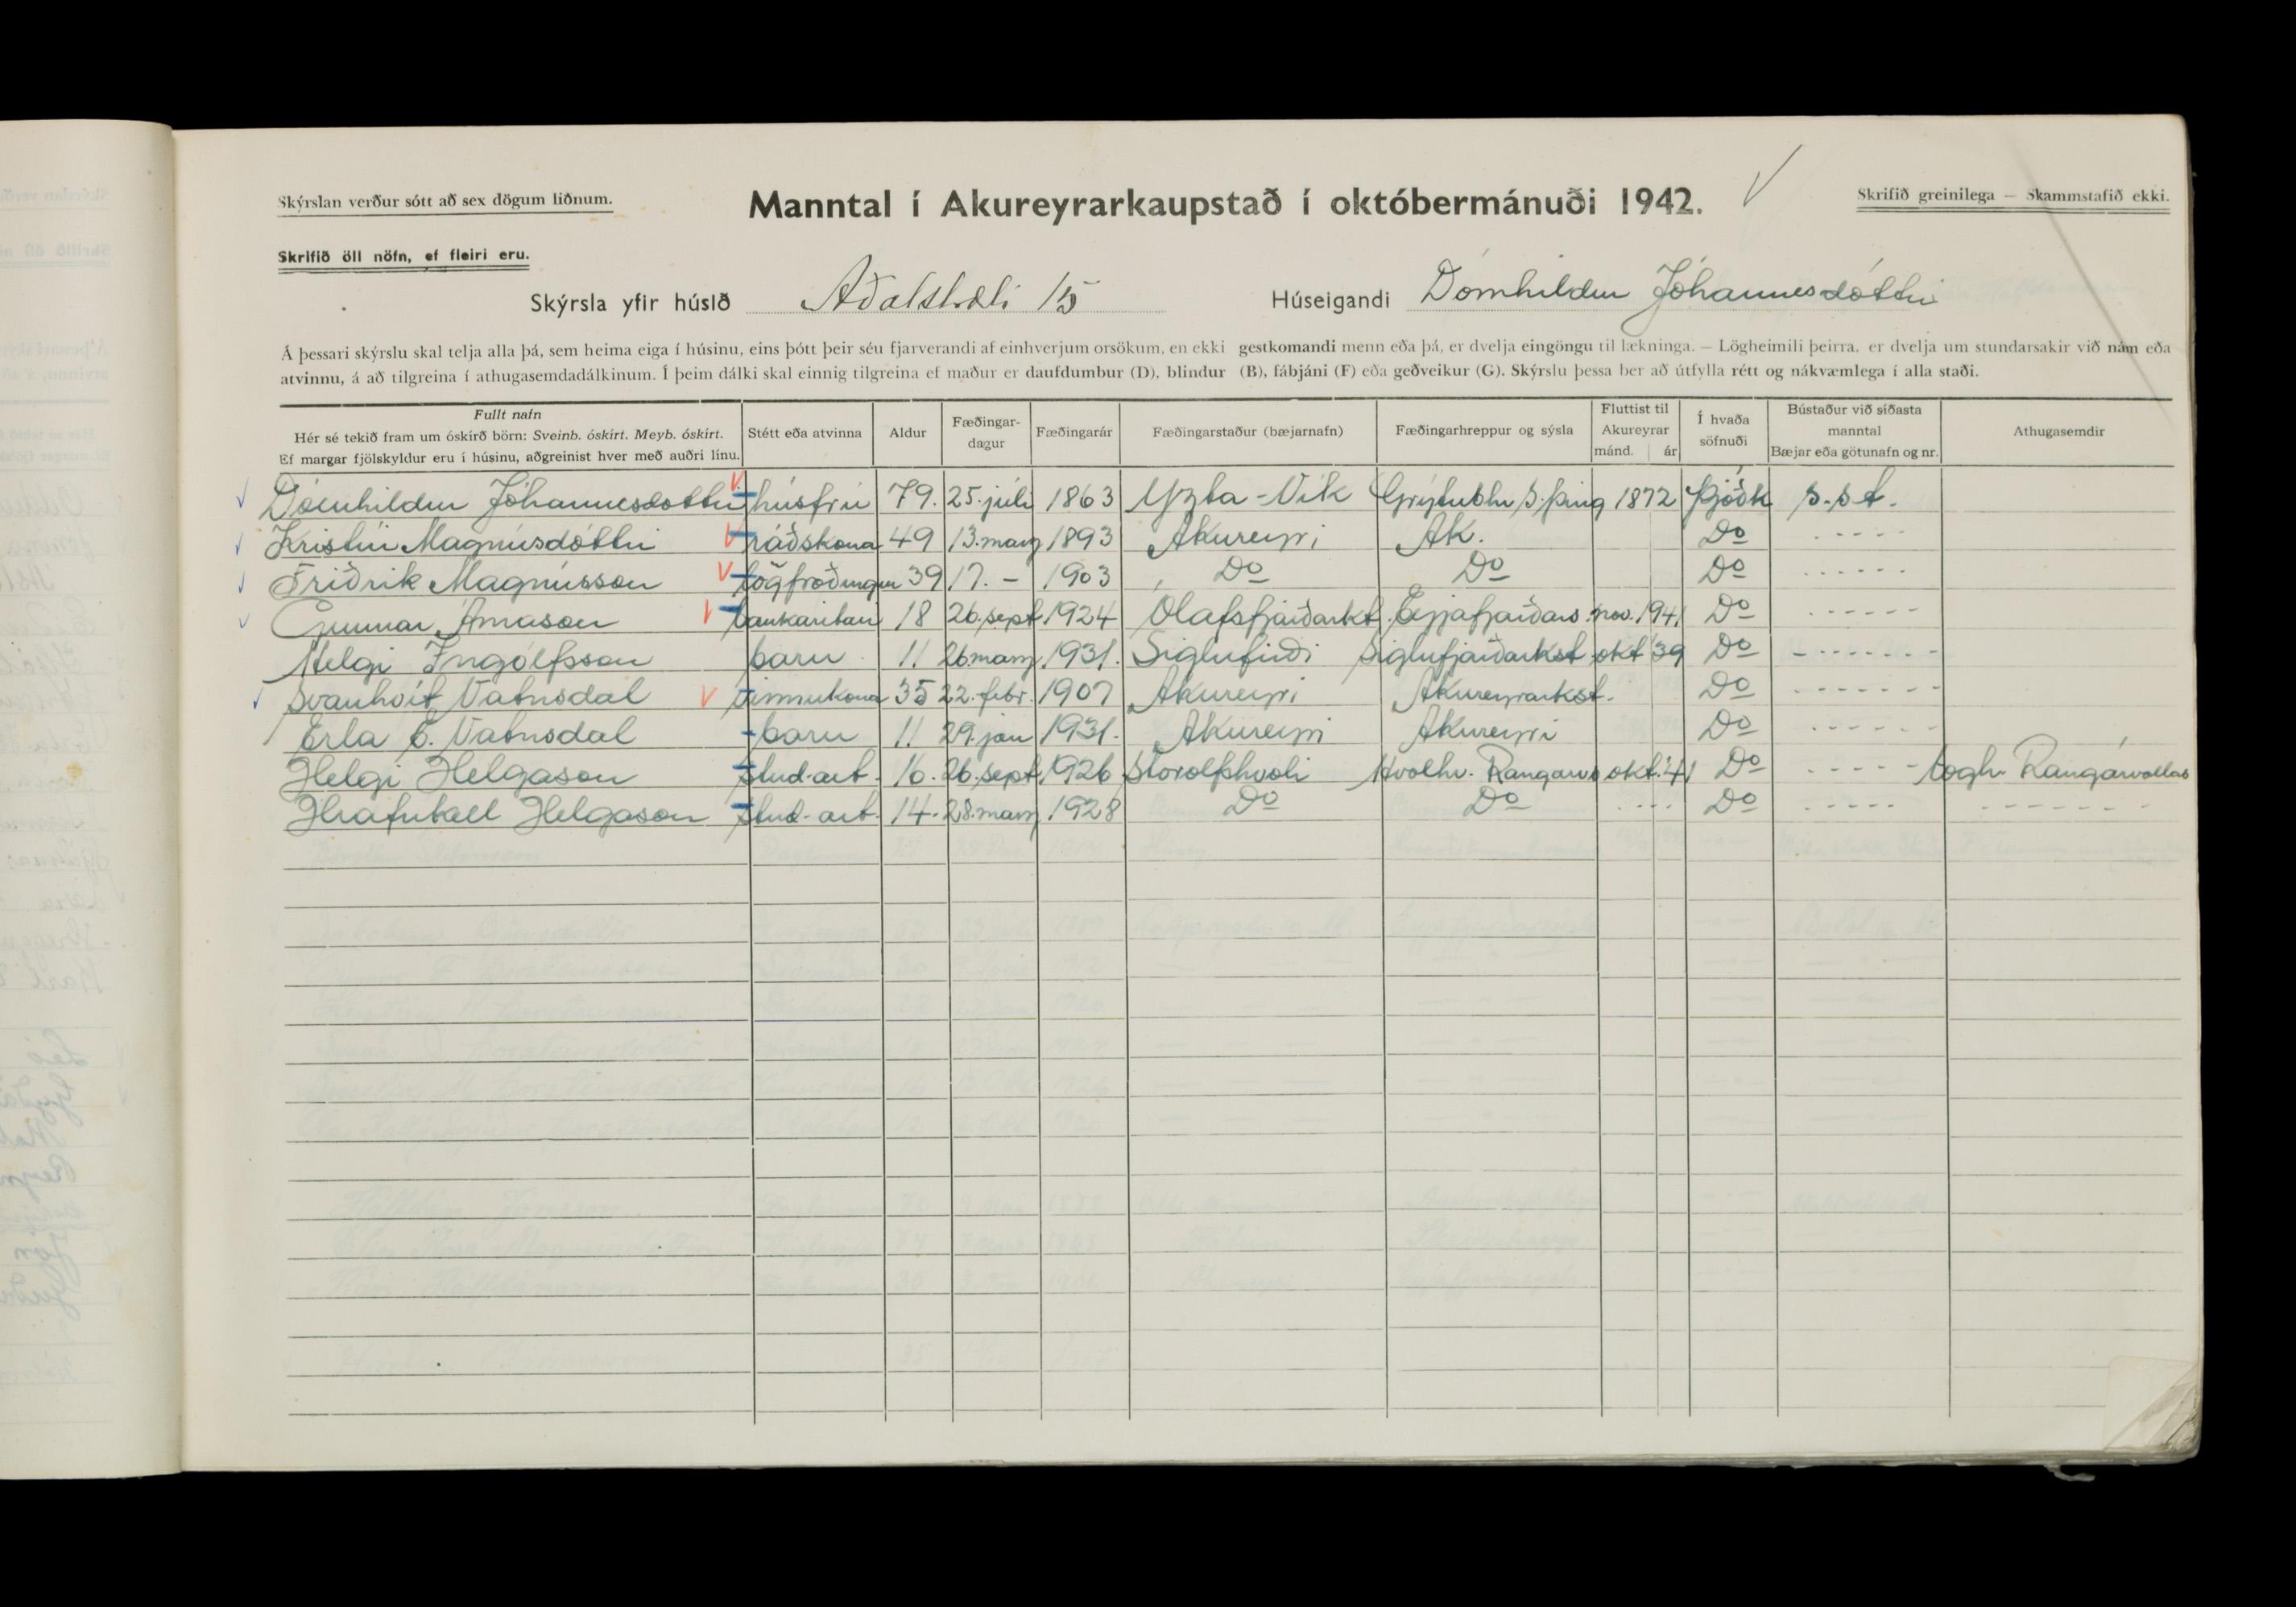 Skýrslan verður sótt að sex dögum liðnum.
Manntal í Akureyrarkaupstað í októbermánuði 1942.
Skrifið greinilega — Skammstafið ekki.
Skrifið öll nöfn, ef fleiri eru.
Skýrsla yfir húsið Aðalstræti 15 Húseigandi Dómhildur Jóhannesdóttir
Á þessari skýrslu skal telja alla þá, sem heima eiga í húsinu, eins þótt þeir séu fjarverandi af einhverjum orsökum, en ekki gestkomandi menn eða þá, er dvelja eingöngu til lækninga. — Lögheimili þeirra, er dvelja um stundarsakir við nám eða
atvinnu, á að tilgreina í athugasemdadálkinum. Í þeim dálki skal einnig tilgreina ef maður er daufdumbur (D), blindur (B), fábjáni (F) eða geðveikur (G). Skýrslu þessa ber að útfylla rétt og nákvæmlega í alla staði.
Fullt nafn
Hér sé tekið fram um óskírð börn: Sveinb. óskírt. Meyb. óskírt.
Ef margar fjölskyldur eru í húsinu, aðgreinist hver með auðri línu.
Stétt eða atvinna
Aldur
Fæðingar-
dagur
Fæðingarár
Fæðingarstaður (bæjarnafn)
Fæðingarhreppur og sýsla
Fluttist til
Akureyrar
mánd. ár
Í hvaða
söfnuði
Bústaður við síðasta
manntal
Bæjar eða götunafn og nr.
Athugasemdir
Dómhildur Jóhannesdóttir húsfrú 79. 25. júlí 1863 Yzta-Vík Grýtubhr S. Þing 1872 Þjóðk s. st.
Kristín Magnúsdóttir ráðskona 49 13. marz 1893 Akureyri Ak. Do - - - - -
Friðrik Magnússon lögfræðingur 39 17. – 1903 Do Do Do - - - - - -
Gunnar Árnason bankaritari 18 26. sept 1924 Ólafsfjarðarkt. Eyjafjarðars. nov. 1941 Do - - - - - -
Helgi Ingólfsson barn 11 26 marz 1931. Siglufirði Siglufjarðarkst okt '39 Do - - - - - - -
Svanhvít Vatnsdal vinnukona 35 22. febr. 1907 Akureyri Akureyrarkst. Do - - - - - - -
Erla E. Vatnsdal barn 11 29. jan 1931. Akureyri Akureyri Do - - - - - -
Helgi Helgason stud. art. 16. 26. sept. 1926 Stórolfshvoli Hvolhr. Rangárvs okt. '41 Do - - - - - Logh. Rangárvallas
Hrafnkell Helgason stud. art. 14. 28. marz 1928 Do Do - - - - Do - - - - - - - - - - -